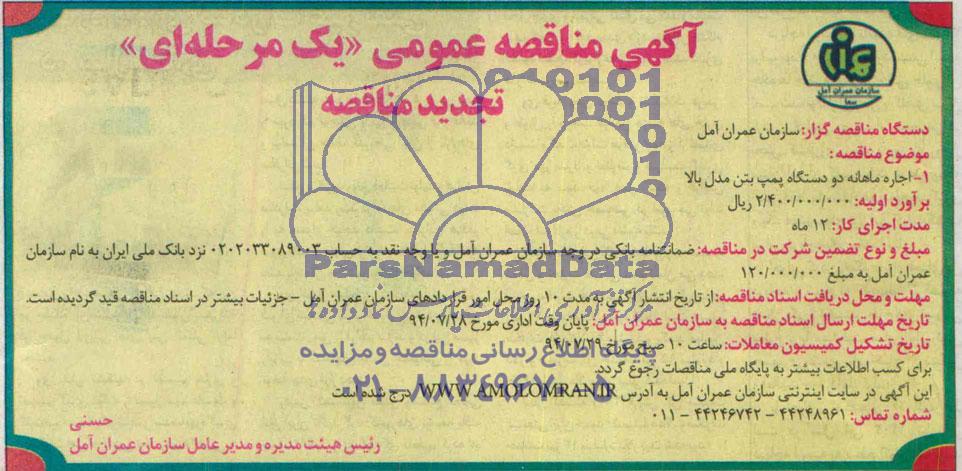 آگهی مناقصه عمومی «یک مرحله‌ای»
تجدید مناقصه
سازمان عمران آمل
سعا
دستگاه مناقصه گزار: سازمان عمران آمل
موضوع مناقصه:
۱- اجاره ماهانه دو دستگاه پمپ بتن مدل بالا
برآورد اولیه: ۲/۴۰۰/۰۰۰/۰۰۰ ریال
مدت اجرای کار: ۱۲ ماه
مبلغ و نوع تضمین شرکت در مناقصه: ضمانتنامه بانکی در وجه سازمان عمران آمل و یا وجه نقد به حساب ۰۲۰۲۰۳۳۰۸۹۰۰۳ نزد بانک ملی ایران به نام سازمان
عمران آمل به مبلغ ۱۲۰/۰۰۰/۰۰۰
مهلت و محل دریافت اسناد مناقصه: از تاریخ انتشار آگهی به مدت ۱۰ روز محل امور قراردادهای سازمان عمران آمل - جزئیات بیشتر در اسناد مناقصه قید گردیده است.
تاریخ مهلت ارسال اسناد مناقصه به سازمان عمران آمل: پایان وقت اداری مورخ ۹۴/۰۷/۲۸
تاریخ تشکیل کمیسیون معاملات: ساعت ۱۰ صبح مورخ ۹۴/۰۷/۲۹
برای کسب اطلاعات بیشتر به پایگاه ملی مناقصات رجوع گردد.
این آگهی در سایت اینترنتی سازمان عمران آمل به آدرس WWW.AMOLOMRAN.IR درج شده است
شماره تماس: ۴۴۲۴۸۹۶۱ - ۴۴۲۴۶۷۴۲ - ۰۱۱
حسنی
رئیس هیئت مدیره و مدیر عامل سازمان عمران آمل
ParsNamadData
مرکز فرآوری اطلاعات پارس نماد داده ها
پایگاه اطلاع رسانی مناقصه و مزایده
۰۲۱-۸۸۳۴۹۶۷۰-۵